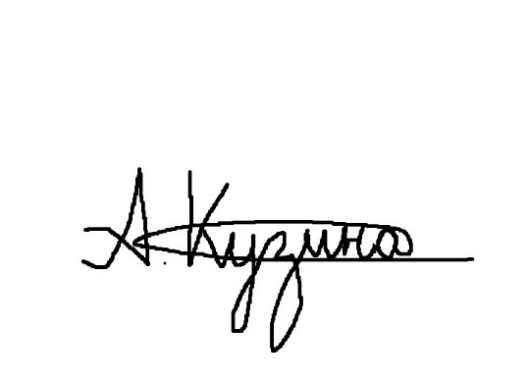 А. Кузина